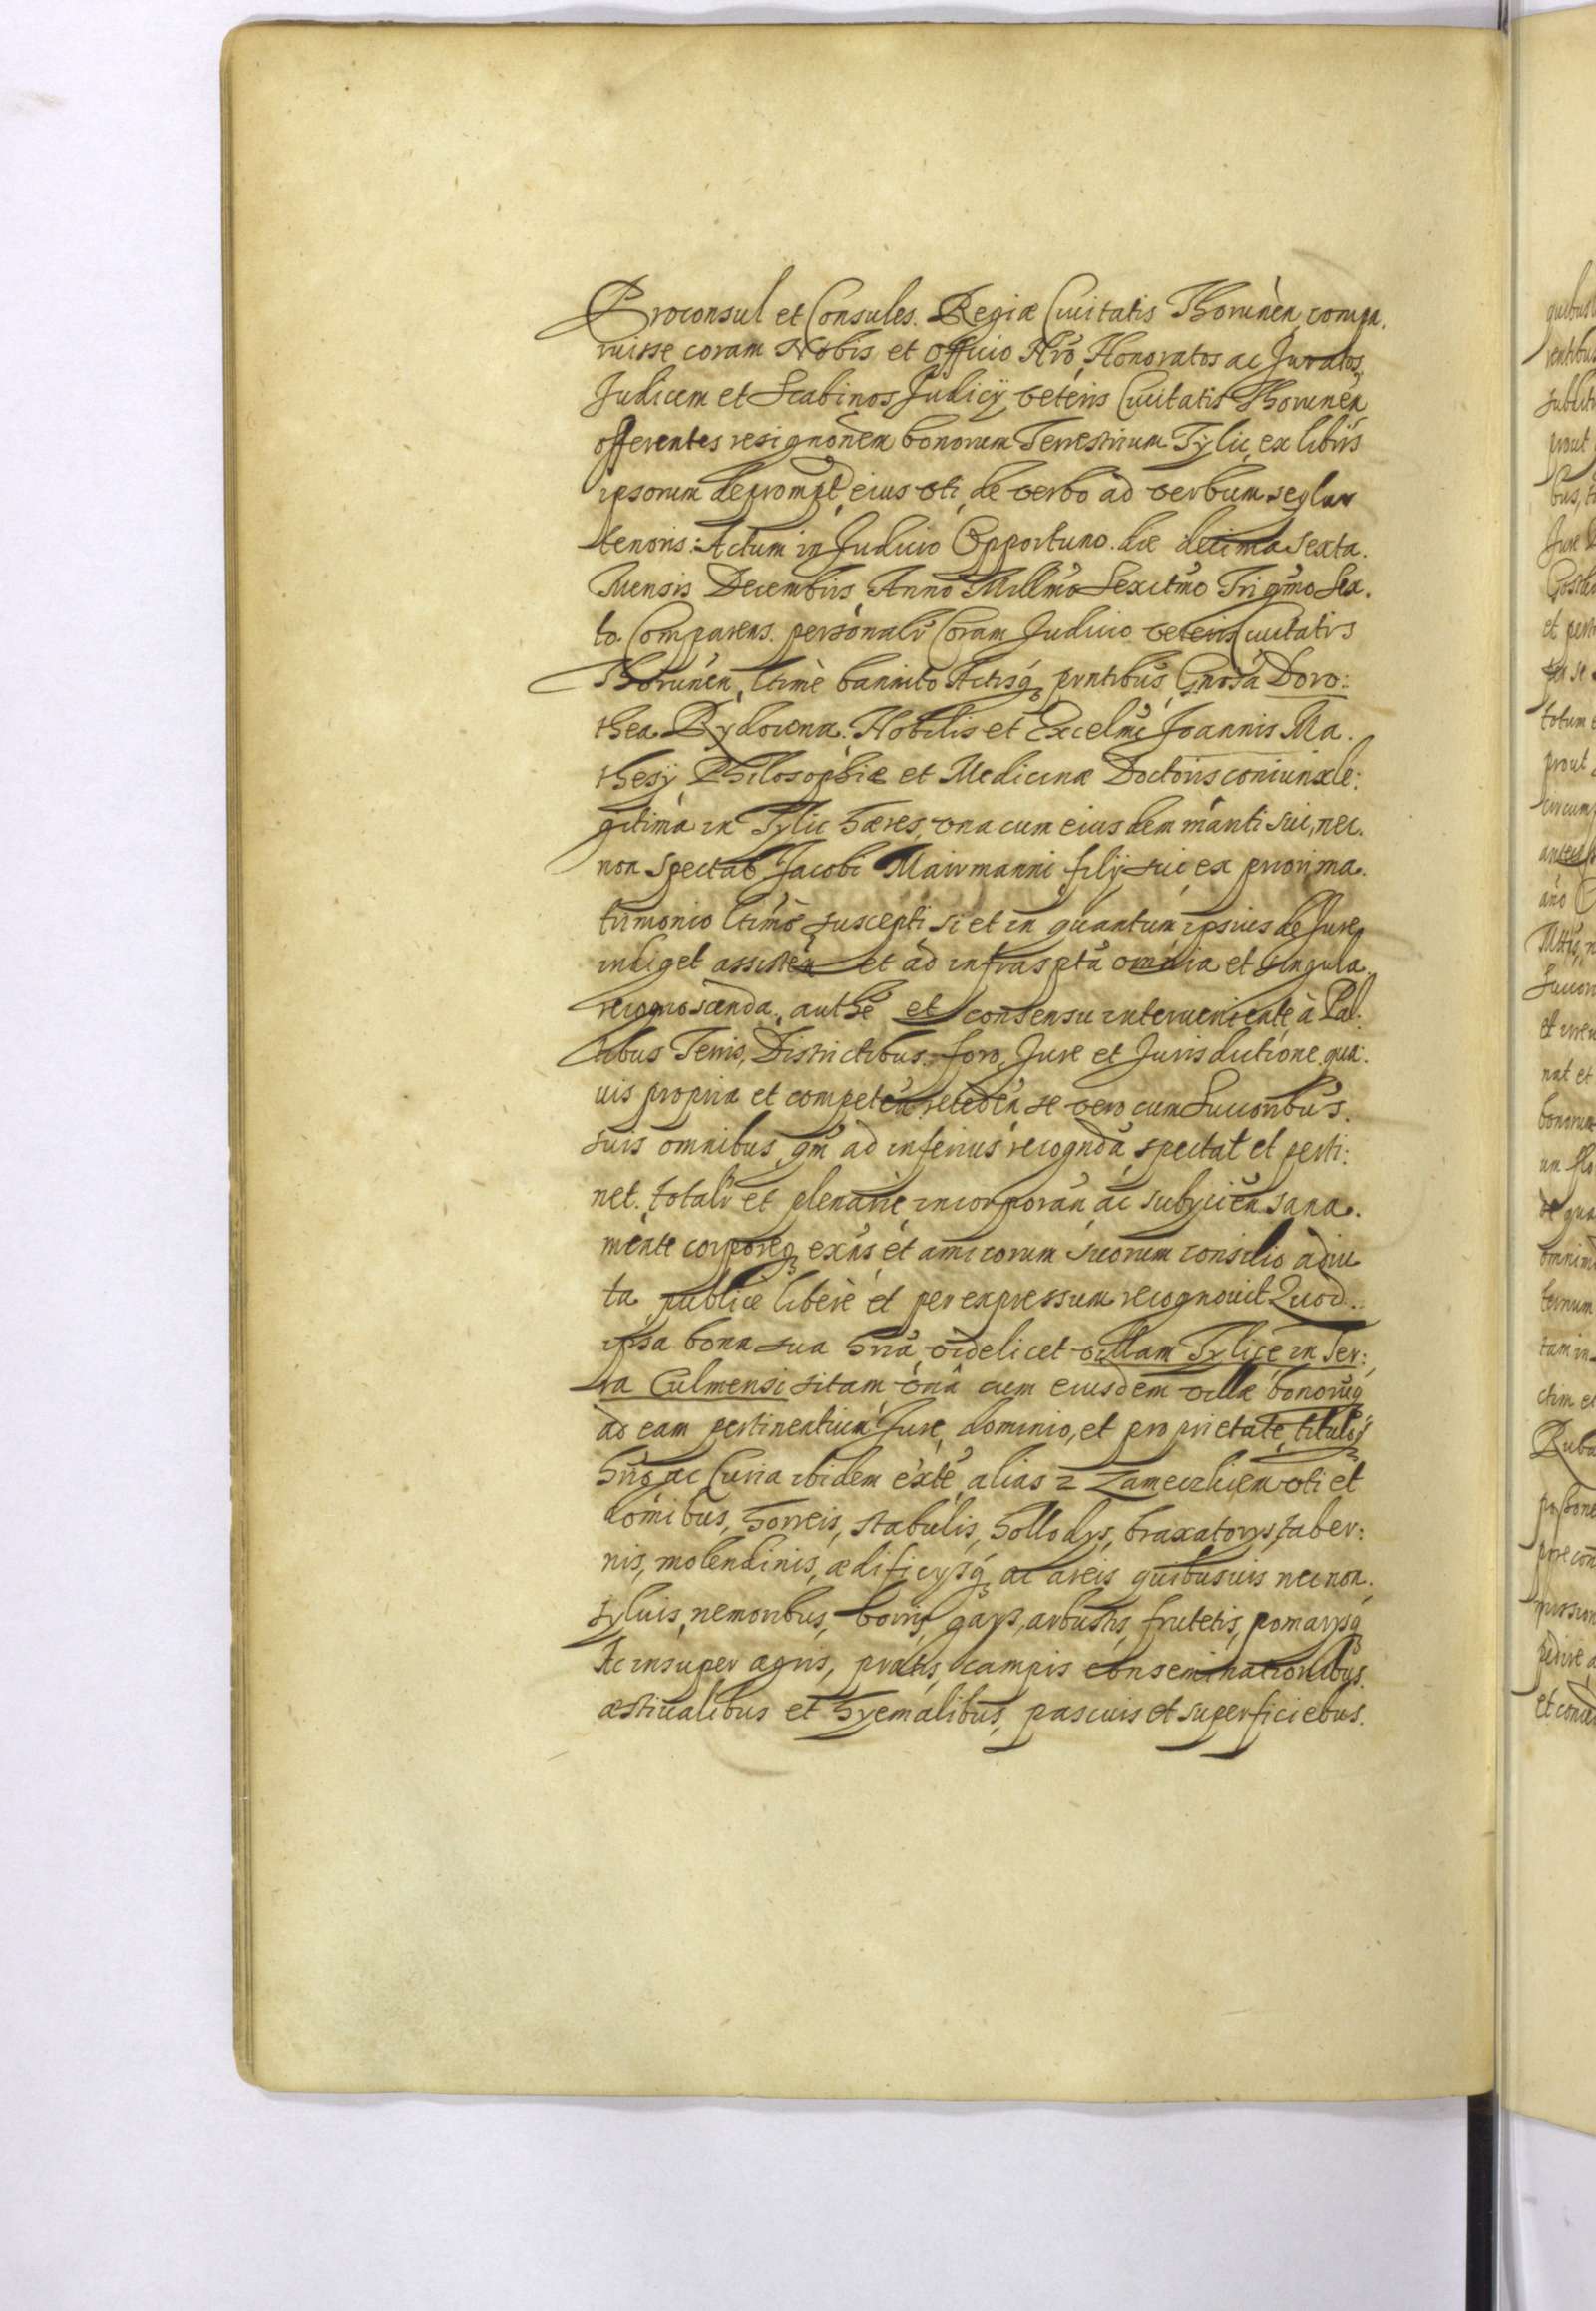 Proconsul et Consules. Regiæ Ciuitatis Thorunen, compa.
ruisse coram Nobis et Officio Nro, Honoratos ac Juratos,
Judicem et Scabinos Judicÿ veteris Ciuitatis Thorunen
offerentes resignonem bonorum Terrestrium Tylic, ex libris
ipsorum deprompt, eius vti, de verbo ad verbum seqlar
tenoris: Actum in Judicio Opportuno. die decima Sexta.
Mensis Decembris, Anno Millmo Sexctmo Trigmo Sex.
to. Comparens. personalr Coram Judicio veteris Ciuitatis
Thorunen, ltime bannito Actisq, pntibus, Gnosa Doro:
thea Rydowna. Nobilis et Excelmi Joannis Ma.
thesÿ Philosophiæ et Medicinæ Doctoris coniunx le:
gitima in Tylic hæres, vna cum eiusdem mariti sui, nec.
non Spectab Jacobi Mairmanni filij sui, ex priori ma.
trimonio ltime suscepti si et in quantum ipsius de Jure
indiget assisten et ad infrasptа omnia et singula.
recognoscenda, authe et consensu interueniente à Pal:
libus Terris, Districtibus. foro, Jure et Jurisdictione qua:
uis propria et competen recedèn se vero cum Successoribus.
suis omnibus, qm ad inferius recognda, spectat et perti:
net. totalr et plenarie, incorporan ac subÿcien sana.
mente corporeq exns et amicorum suorum consilio adiu
ta publice libere et per expressum recognouit Quod..
ipsa bona sua hria, videlicet villam Tylice in Ter:
ra Culmensi sitam vna cum eiusdem villæ bonorúq
ad eam pertinentium Jure, dominio, et proprietate, titulo
hrio, ac Curia ibidem exte, alias z Zameczkiem vti et
domibus, horreis, stabulis, hollodys, braxatorys, taber:
nis, molendinis, ædificysq, ac areis quibusuis nec non.
syluis, nemoribus, borris, gays, arbustis, frutetis, pomarysq
Ac insuper agris, pratis, campis conseminationibus.
æstiualibus et hyemalibus, pascuis et superficiebus.